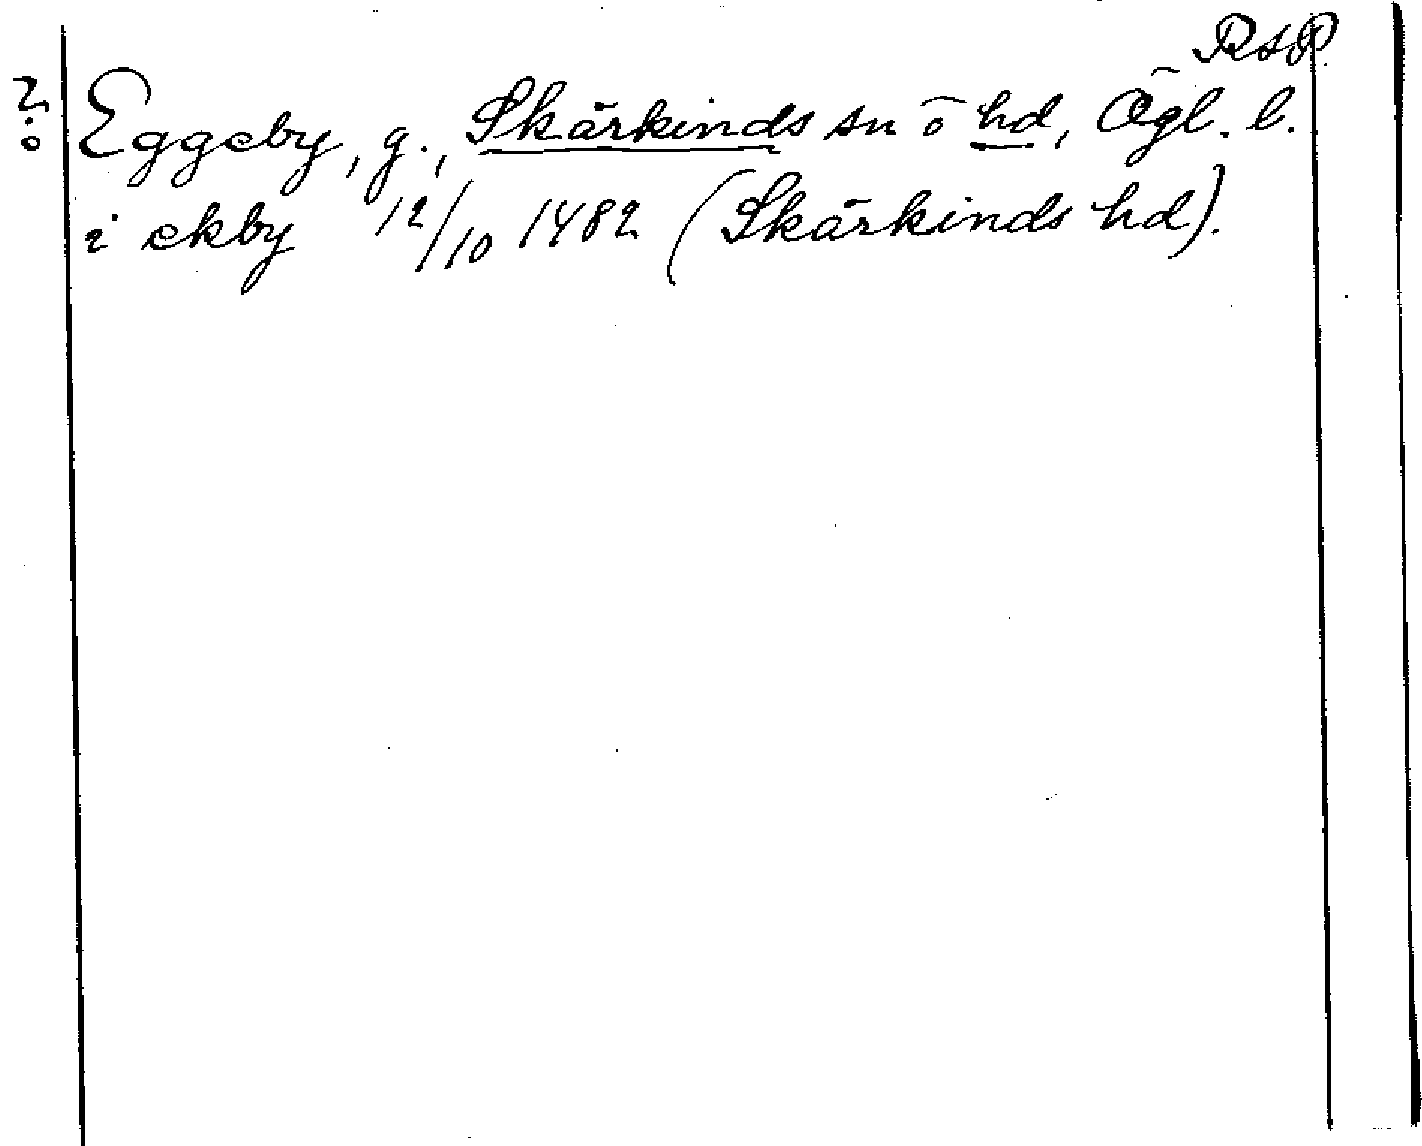 RAP.
? Eggeby, g., Skärkinds sn o hd, Ögl. l.
i ekby 12/10 1482 (Skärkinds hd).